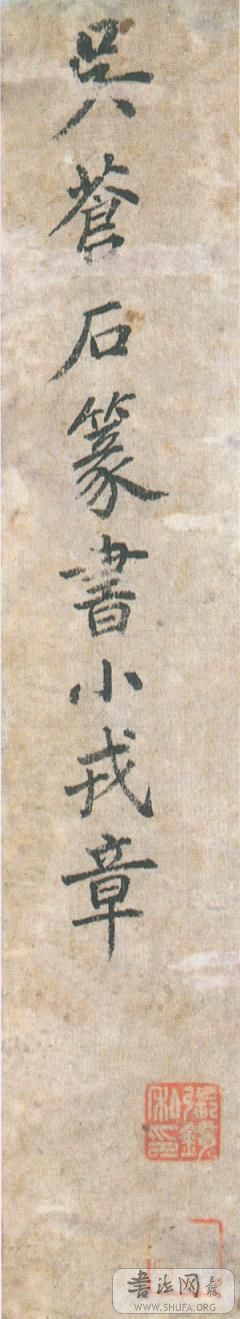 吴蒼石篆書小戎章
書法网
WWW.SHUFA.ORG